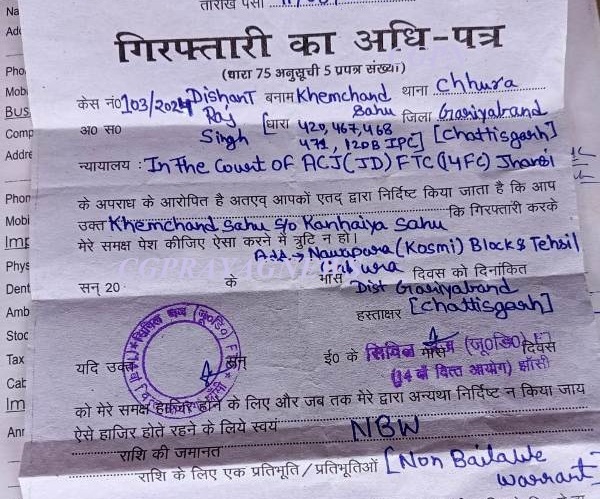 Na
Add
Pho
Mobi
BUS
Comp
Addre
Phor
Mobi
Imp
Phys
Dent
Amb
Stoc
Tax
Cat
Im
Anr
तारीख पेसी
गिरफ्तारी का अधि-पत्र
(धारा 75 अनुसूची 5 प्रपत्र संख्या)
केस नं0 103/2024 Dishant बनाम Khemchand थाना Chhura
Raj Sahu जिला Gariyaband
अ० स० Singh [धारा 420,467,468 [Chattisgarh]
471, 120B IPC]
न्यायालय : In The Court of ACJ(JD) FTC (14FC) Jhansi
के अपराध के आरोपित है अतएव आपको एतद् द्वारा निर्दिष्ट किया जाता है कि आप
उक्त Khemchand Sahu S/o Kanhaiya Sahu कि गिरफ्तारी करके
मेरे समक्ष पेश कीजिए ऐसा करने में त्रुटि न हो।
Add.→ Nawapara (Kosmi) Block & Tehsil
CGPRAYAGNEWS
सन् 20 के मास दिवस को दिनांकित
Dist Gariyaband
हस्ताक्षर [Chattisgarh]
यदि उक्त ई० के सिविल (जू०डि०) दिवस
(14 वां वित्त आयोग) झाँसी
को मेरे समक्ष हाजिर होने के लिए और जब तक मेरे द्वारा अन्यथा निर्दिष्ट न किया जाय
ऐसे हाजिर होते रहने के लिये स्वयं NBW
राशि की जमानत
राशि के लिए एक प्रतिभूति / प्रतिभूतिओं [Non Bailable
Warrant]